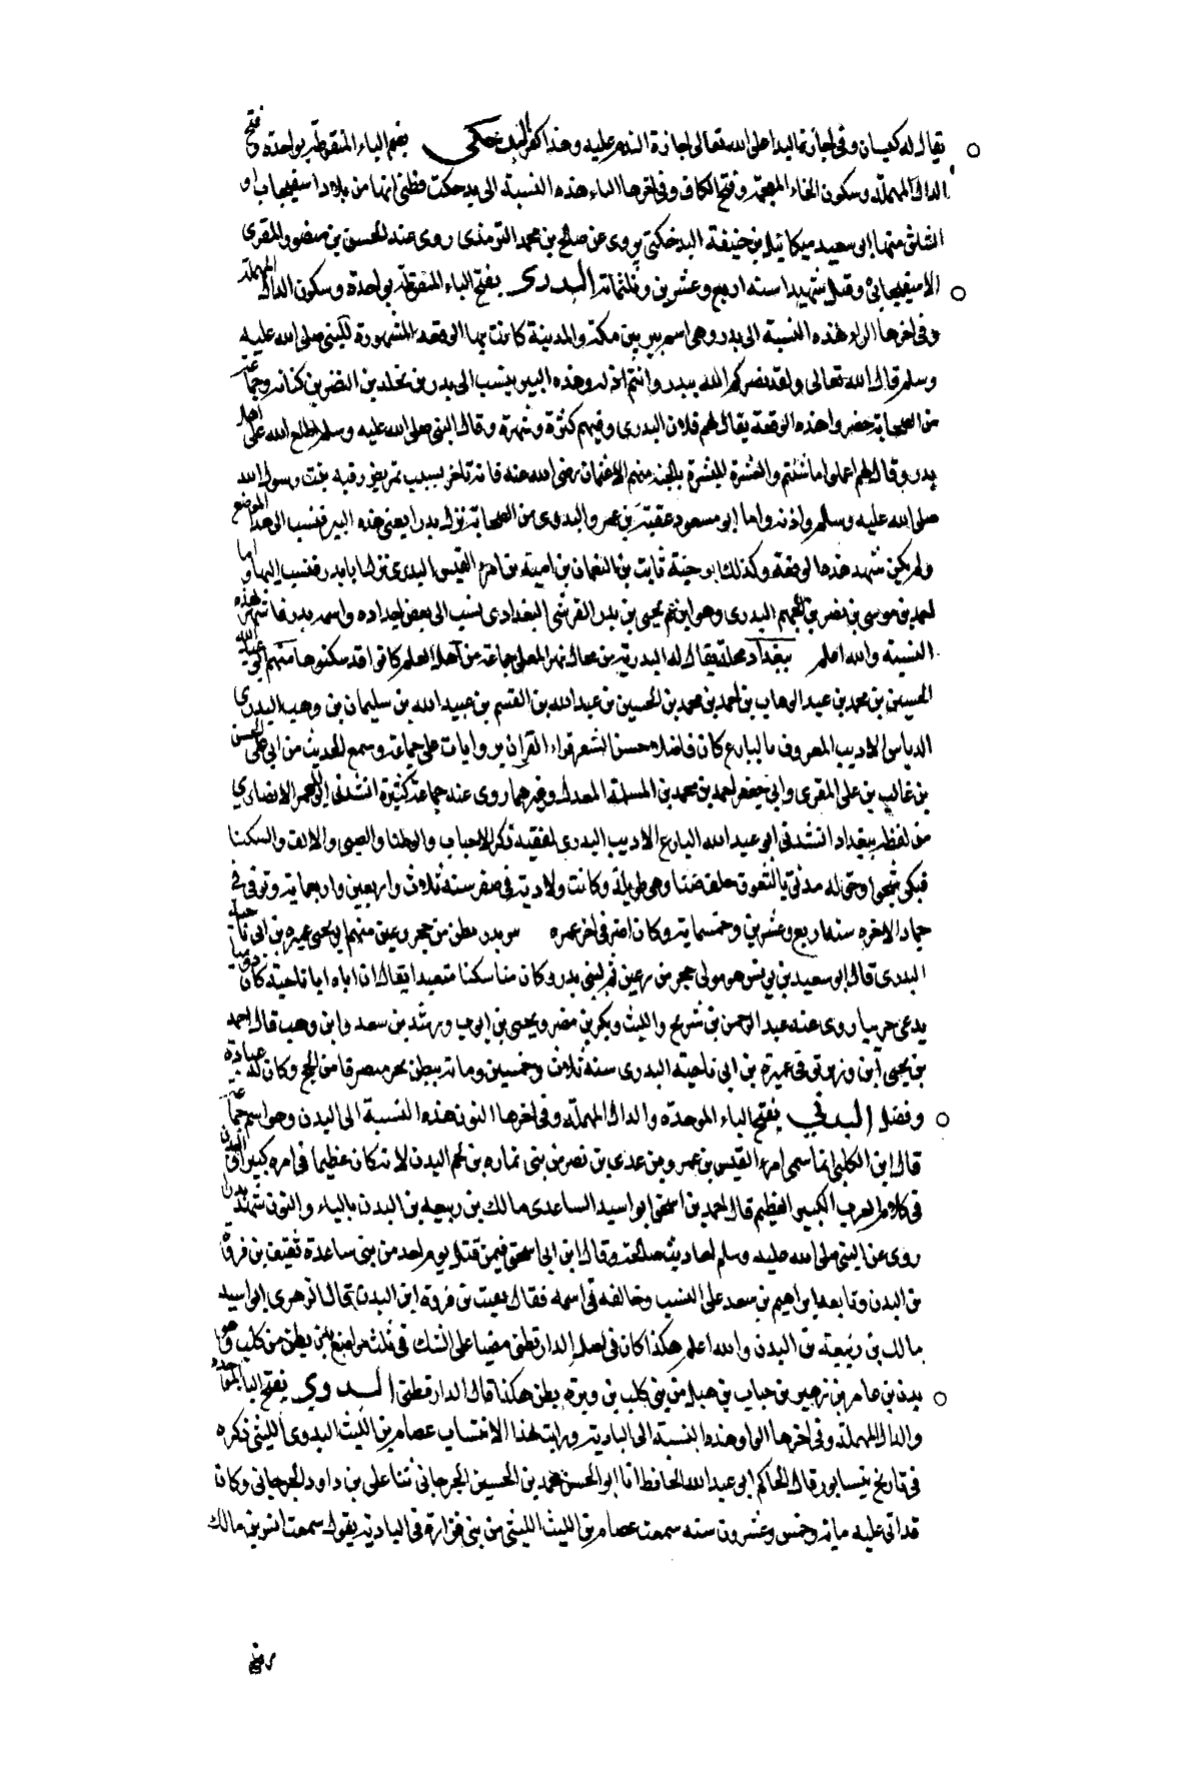 يقال له كيسان وفى اجازته الىد اعلى الله تعالى اجازة الىدهر عليه وهذا اكثر البدخكتي بفتح الباء المنقوطة بواحدة وفتح
الدال المهملة وسكون الخاء المعجمة وفتح الكاف وفي اخرها التاء هذه النسبة الى بدخكت وظني انها من بلاد اسفيجاب او
الشاش منها ابو سعيد ميكائيل بن حنيفة البدخكتي يروى عن صالح بن محمد الترمذى روى عنه الحسن بن منصور المقرى
الاسفيجابى وقتل شهيدا سنه اربع وعشرين وثلثمائة البدرى بفتح الباء المنقوطة بواحدة وسكون الدال المهملة
وفى اخرها الراء هذه النسبة الى بدر وهى اسم بير بين مكة والمدينة كانت بها الوقعة المشهورة للنبى صلى الله عليه
وسلم قال الله تعالى ولقد نصركم الله ببدر وانتم اذلة وهذه البير ينسب الى بدر بن يخلد بن النضر بن كنانه وجماعة
من الصحابة حضروا هذه الوقعة يقال لهم فلان البدرى وفيهم كثرة وشهرة وقال النبى صلى الله عليه وسلم اطلع الله على اهل
بدر وقال لهم اعملوا ما شئتم والعشرة المبشرة بالجنه منهم الا عثمان رضى الله عنه فانه تاخر بسبب تمريض رقيه بنت رسول الله
صلى الله عليه وسلم واذنه واما ابو مسعود عقبة بن عمرو البدرى من الصحابة نزل بدرا يعنى هذه البير فنسب الى هذا الموضع
ولم يكن شهد هذه الوقعة وكذلك ابو حنة ثابت بن النعمان بن امية بن امرء القيس البدرى نزل بدر فنسب اليها واما
احمد بن موسى بن نصر بن الجهم البدرى وهو ابن عم يحيى بن بدر القرشى البغدادى نسب الى بعض اجداده واسمه بدر فاشتهر بهذه
النسبة والله اعلم ببغداد محلة يقال له البدرية من محال نهر المعلى جماعة من اهل العلم كانوا قد سكنوها منهم ابو عبد الله
الحسين بن محمد بن عبد الوهاب بن احمد بن محمد بن الحسين بن عبد الله بن القسم بن عبيد الله بن سليمان بن وهب البدرى
الدباس الاديب المعروف بالبارع كان فاضلا حسن الشعر قراء القران بروايات على جماعة وسمع الحديث من ابى على الحسن
بن غالب بن على المقرى وابى جعفر احمد بن محمد بن المسلمة المعدل وغيرهما روى عنه جماعة كثيرة انشدنى ابو المعمر الانصارى
من لفظه ببغداد انشدنى ابو عبد الله البارع الاديب البدرى لنفسه ذكر الاحباب والوطنا والصبى والالف والسكنا
فبكى شجوا وحق له مدنف بالشوق حلف ضنا وهى طويلة وكانت ولادته فى صفر سنه ثلاث واربعين واربعمايه وتوفى فى
جماد الاخره سنه اربع وعشرين وخمسمايه وكان اضر فى اخر عمره بدر بطن من حجر رعين منهم ابو يحيى عميره بن ابى ناجية
البدرى قال ابو سعيد بن يونس هو مولى حجر من رعين ثم لبنى بدر وكان ناسكا متعبدا يقال ان اباه ابا ناجية كان
يدعى حريبا روى عنه عبد الرحمن بن شريح والليث وبكر بن مضر ويحيى بن ايوب ورشد بن سعد وابن وهب قال احمد
بن يحيى ابن وزير توفى عميرة بن ابى ناجية البدرى سنة ثلاث وخمسين ومائة ببطن بحر منصرفا من الحج وكان له عبادة
وفضل البدني بفتح الباء الموحدة والدال المهملة وفى اخرها النون هذه النسبة الى البدن وهو اسم جماعة
قال ابن الكلبى انما سمى امرء القيس بن عمرو بن عدى بن نصر من بنى نماره بن لخم البدن لانه كان عظيما فى امره كبيرا والبدن
فى كلام العرب الكبير العظيم قال احمد بن اسحق ابو اسيد الساعدى مالك بن ربيعه بن البدن بالباء والنون شهد بدرا
روى عن النبى صلى الله عليه وسلم احاديث صالحة وقال ابن ابى اسحق فيمن قتل يوم احد من بنى ساعدة ثقيف بن فروة
بن البدن وتابعه ابراهيم بن سعد على النسب وخالفه فى اسمه فقال بن فروة ابن البدن قال الزهرى ابو اسيد
مالك بن ربيعة بن البدن والله اعلم هكذا كان فى اصل الدارقطنى مضبا على الشك فى ثلث مواضع بدن بطن من كلب وهو
بدن بن عامر بن زهير بن جناب بن هبل من بنى كلب بن وبرة بطن هكذا قال الدارقطنى البدوي بفتح الباء الموحدة
والدال المهملة وفى اخرها الواو هذه النسبة الى البادية ورايت هذا الانتساب عصام بن الليث البدوى الليثى ذكره
فى تاريخ نيسابور قال الحاكم ابو عبد الله الحافظ انا ابو الحسن محمد بن الحسين الجرجانى ثنا على بن داود الجرجانى وكان
قد اتى عليه مائة وخمس وعشرون سنه سمعت عصام بن الليث الليثى من بنى فزارة فى البادية يقول سمعت انس بن مالك